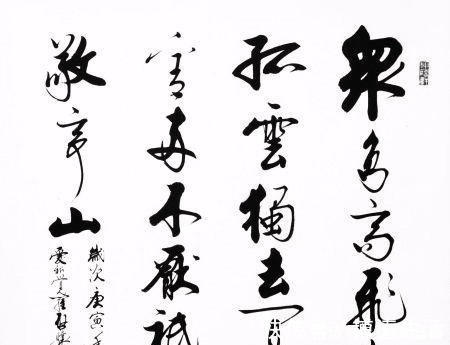 眾鳥高飛
孤雲獨去
看兩不厭祗
敬亭山
歲次庚寅
愛新覺羅